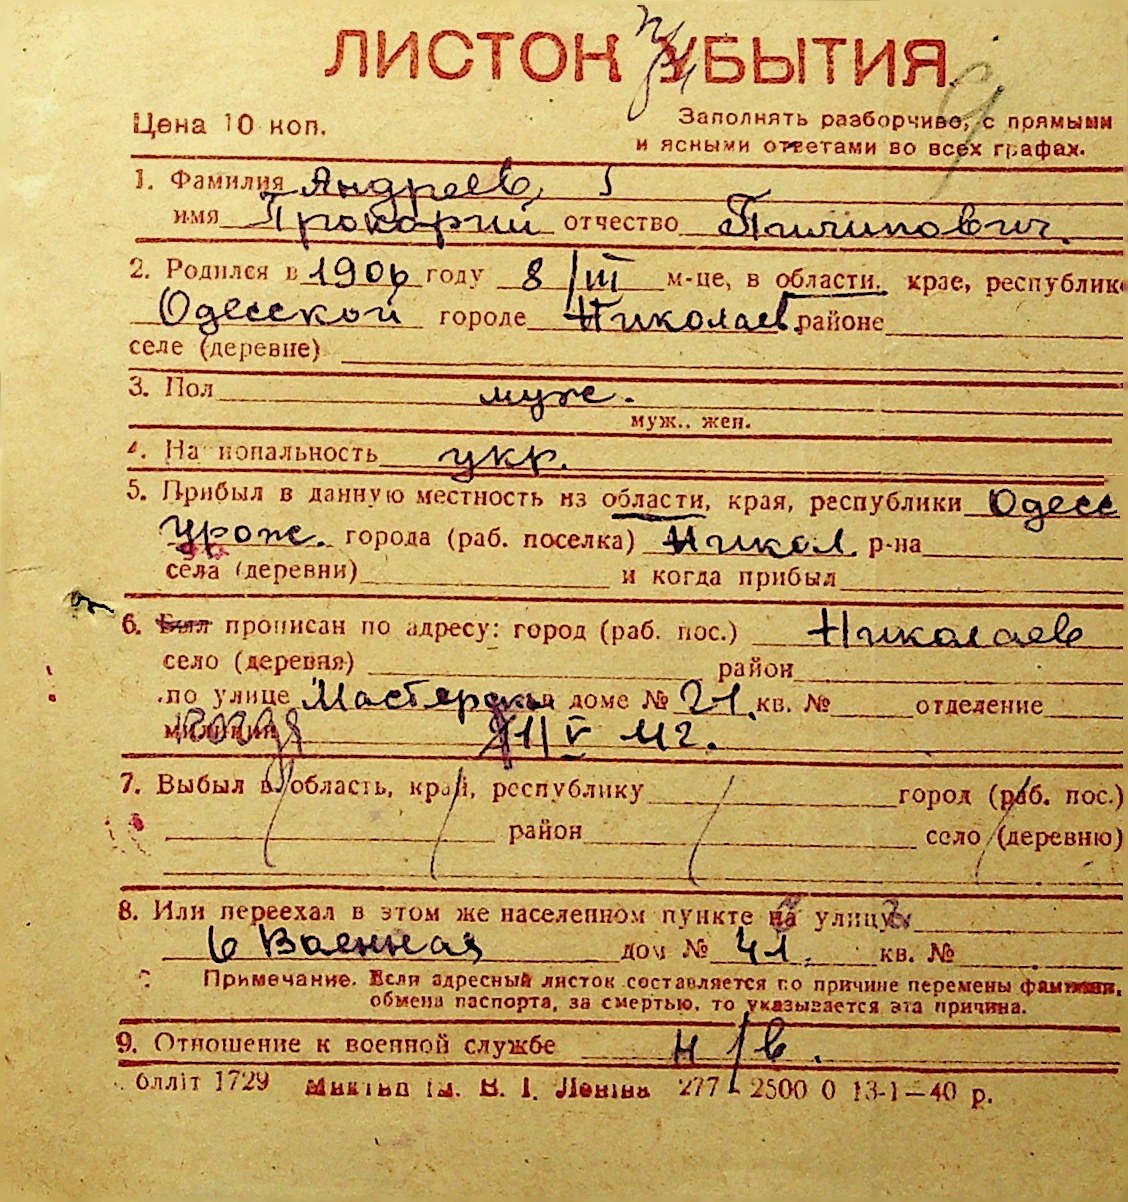 ЛИСТОК УБЫТИЯ
Цена 10 коп.
Заполнять разборчиво, с прямыми
и ясными ответами во всех графах.
1. Фамилия Андреев
имя Прокофий отчество Пилипович.
2. Родился в 1906 году 8/III м-це, в области, крае, республик
Одесской городе Николаев районе
селе (деревне)
3. Пол муж.
муж., жен.
4. Национальность укр.
5. Прибыл в данную местность из области, края, республики Одесс
урож. города (раб. поселка) Никол. р-на
села (деревни) и когда прибыл
6. Был прописан по адресу: город (раб. пос.) Николаев
село (деревня) район
по улице Мастерская доме № 21 кв. № отделение
милиции 41 г.
7. Выбыл в область, край, республику город (раб. пос.)
район село (деревню)
8. Или переехал в этом же населенном пункте на улицу
6 Военная дом № 41. кв. №
Примечание. Если адресный листок составляется по причине перемены фамилии,
обмена паспорта, за смертью, то указывается эта причина.
9. Отношение к военной службе н/в.
блліт 1729 ім. В. І. Леніна 277-2500 0 13-1-40 р.